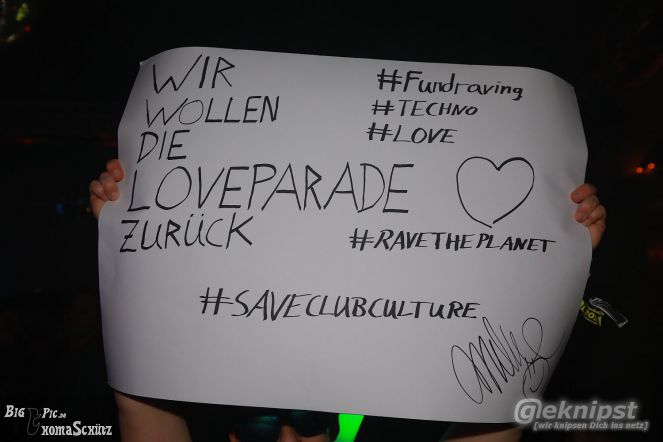 WIR
WOLLEN
DIE
LOVEPARADE
ZURÜCK
#Fundraving
#TECHNO
#LOVE
#RAVETHEPLANET
#SAVECLUBCULTURE
Big Pic.de
xomaSxütz
@eknipst
[wir knipsen Dich ins netz]